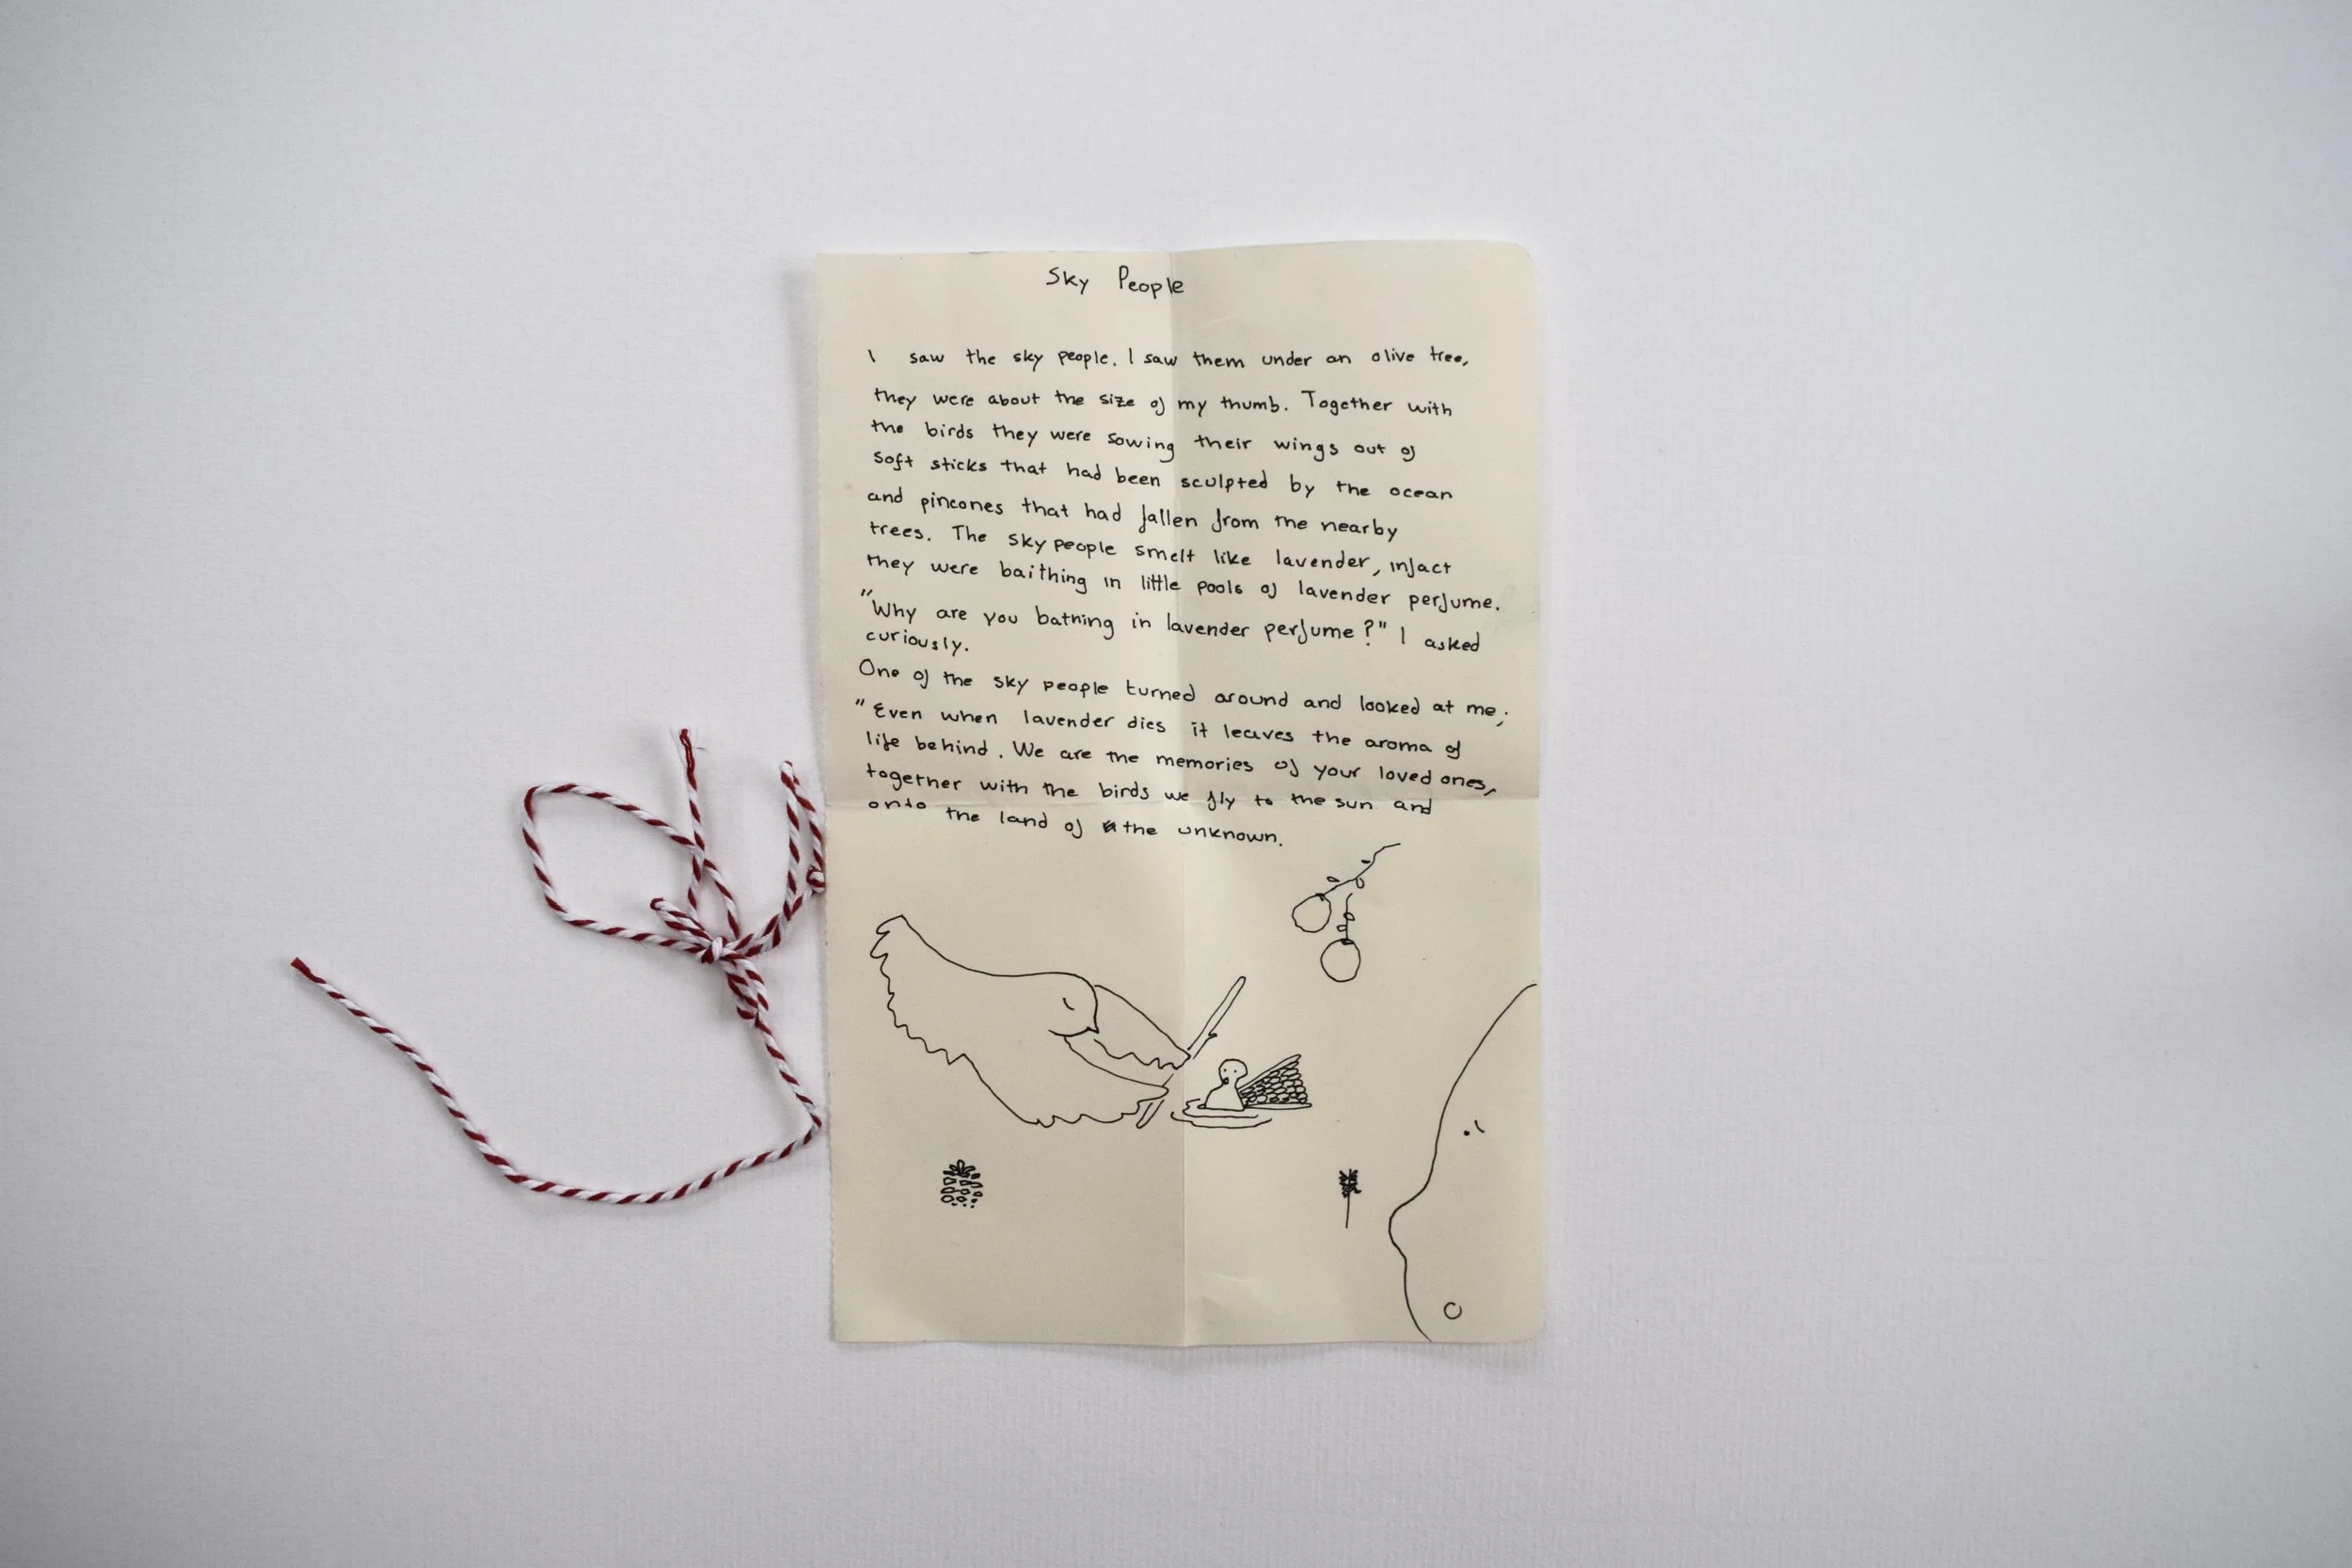 Sky People
I saw the sky people. I saw them under an olive tree,
they were about the size of my thumb. Together with
the birds they were sowing their wings out of
soft sticks that had been sculpted by the ocean
and pincones that had fallen from the nearby
trees. The sky people smelt like lavender, infact
they were baithing in little pools of lavender perfume.
"Why are you bathing in lavender perfume?" I asked
curiously.
One of the sky people turned around and looked at me;
"Even when lavender dies it leaves the aroma of
life behind. We are the memories of your loved ones,
together with the birds we fly to the sun and
onto the land of the unknown.